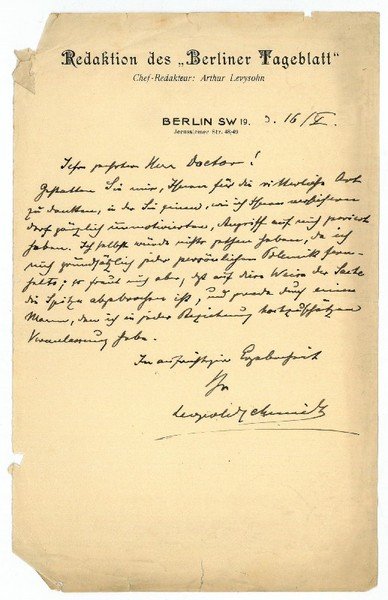 Redaktion des „Berliner Tageblatt"
Chef-Redakteur: Arthur Levysohn
BERLIN SW 19. d. 16/V.
Jerusalemer Str. 48/49
Sehr geehrter Herr Doctor!
Gestatten Sie mir, Ihnen für die ritterliche Art
zu danken, in der Sie einen, wie ich Ihnen versichern
darf gänzlich unmotivirten, Angriff auf mich parirt
haben. Ich selbst würde nichts gethan haben, da ich
mich grundsätzlich jeder persönlichen Polemik fern-
halte; so freut mich aber, daß auf diese Weise der Sache
die Spitze abgebrochen ist, und gerade durch einen
Mann, den ich in jeder Beziehung hochzuschätzen
Veranlassung habe.
In aufrichtiger Ergebenheit
Ihr
Leopold Schmidt